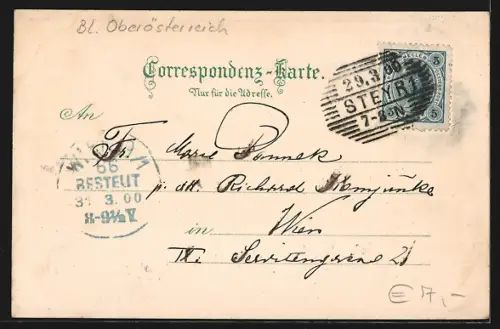 Bl. Oberösterreich
Correspondenz-Karte.
Nur für die Adresse.
5 5
29.3.00
STEYR 1
7-8 N
An
Fr. Marie
WIEN 1
66
BESTELLT
31 3.00
8-9½V
p. adr. Richard
in Wien
IX. Servitengasse 2
€ 7,-